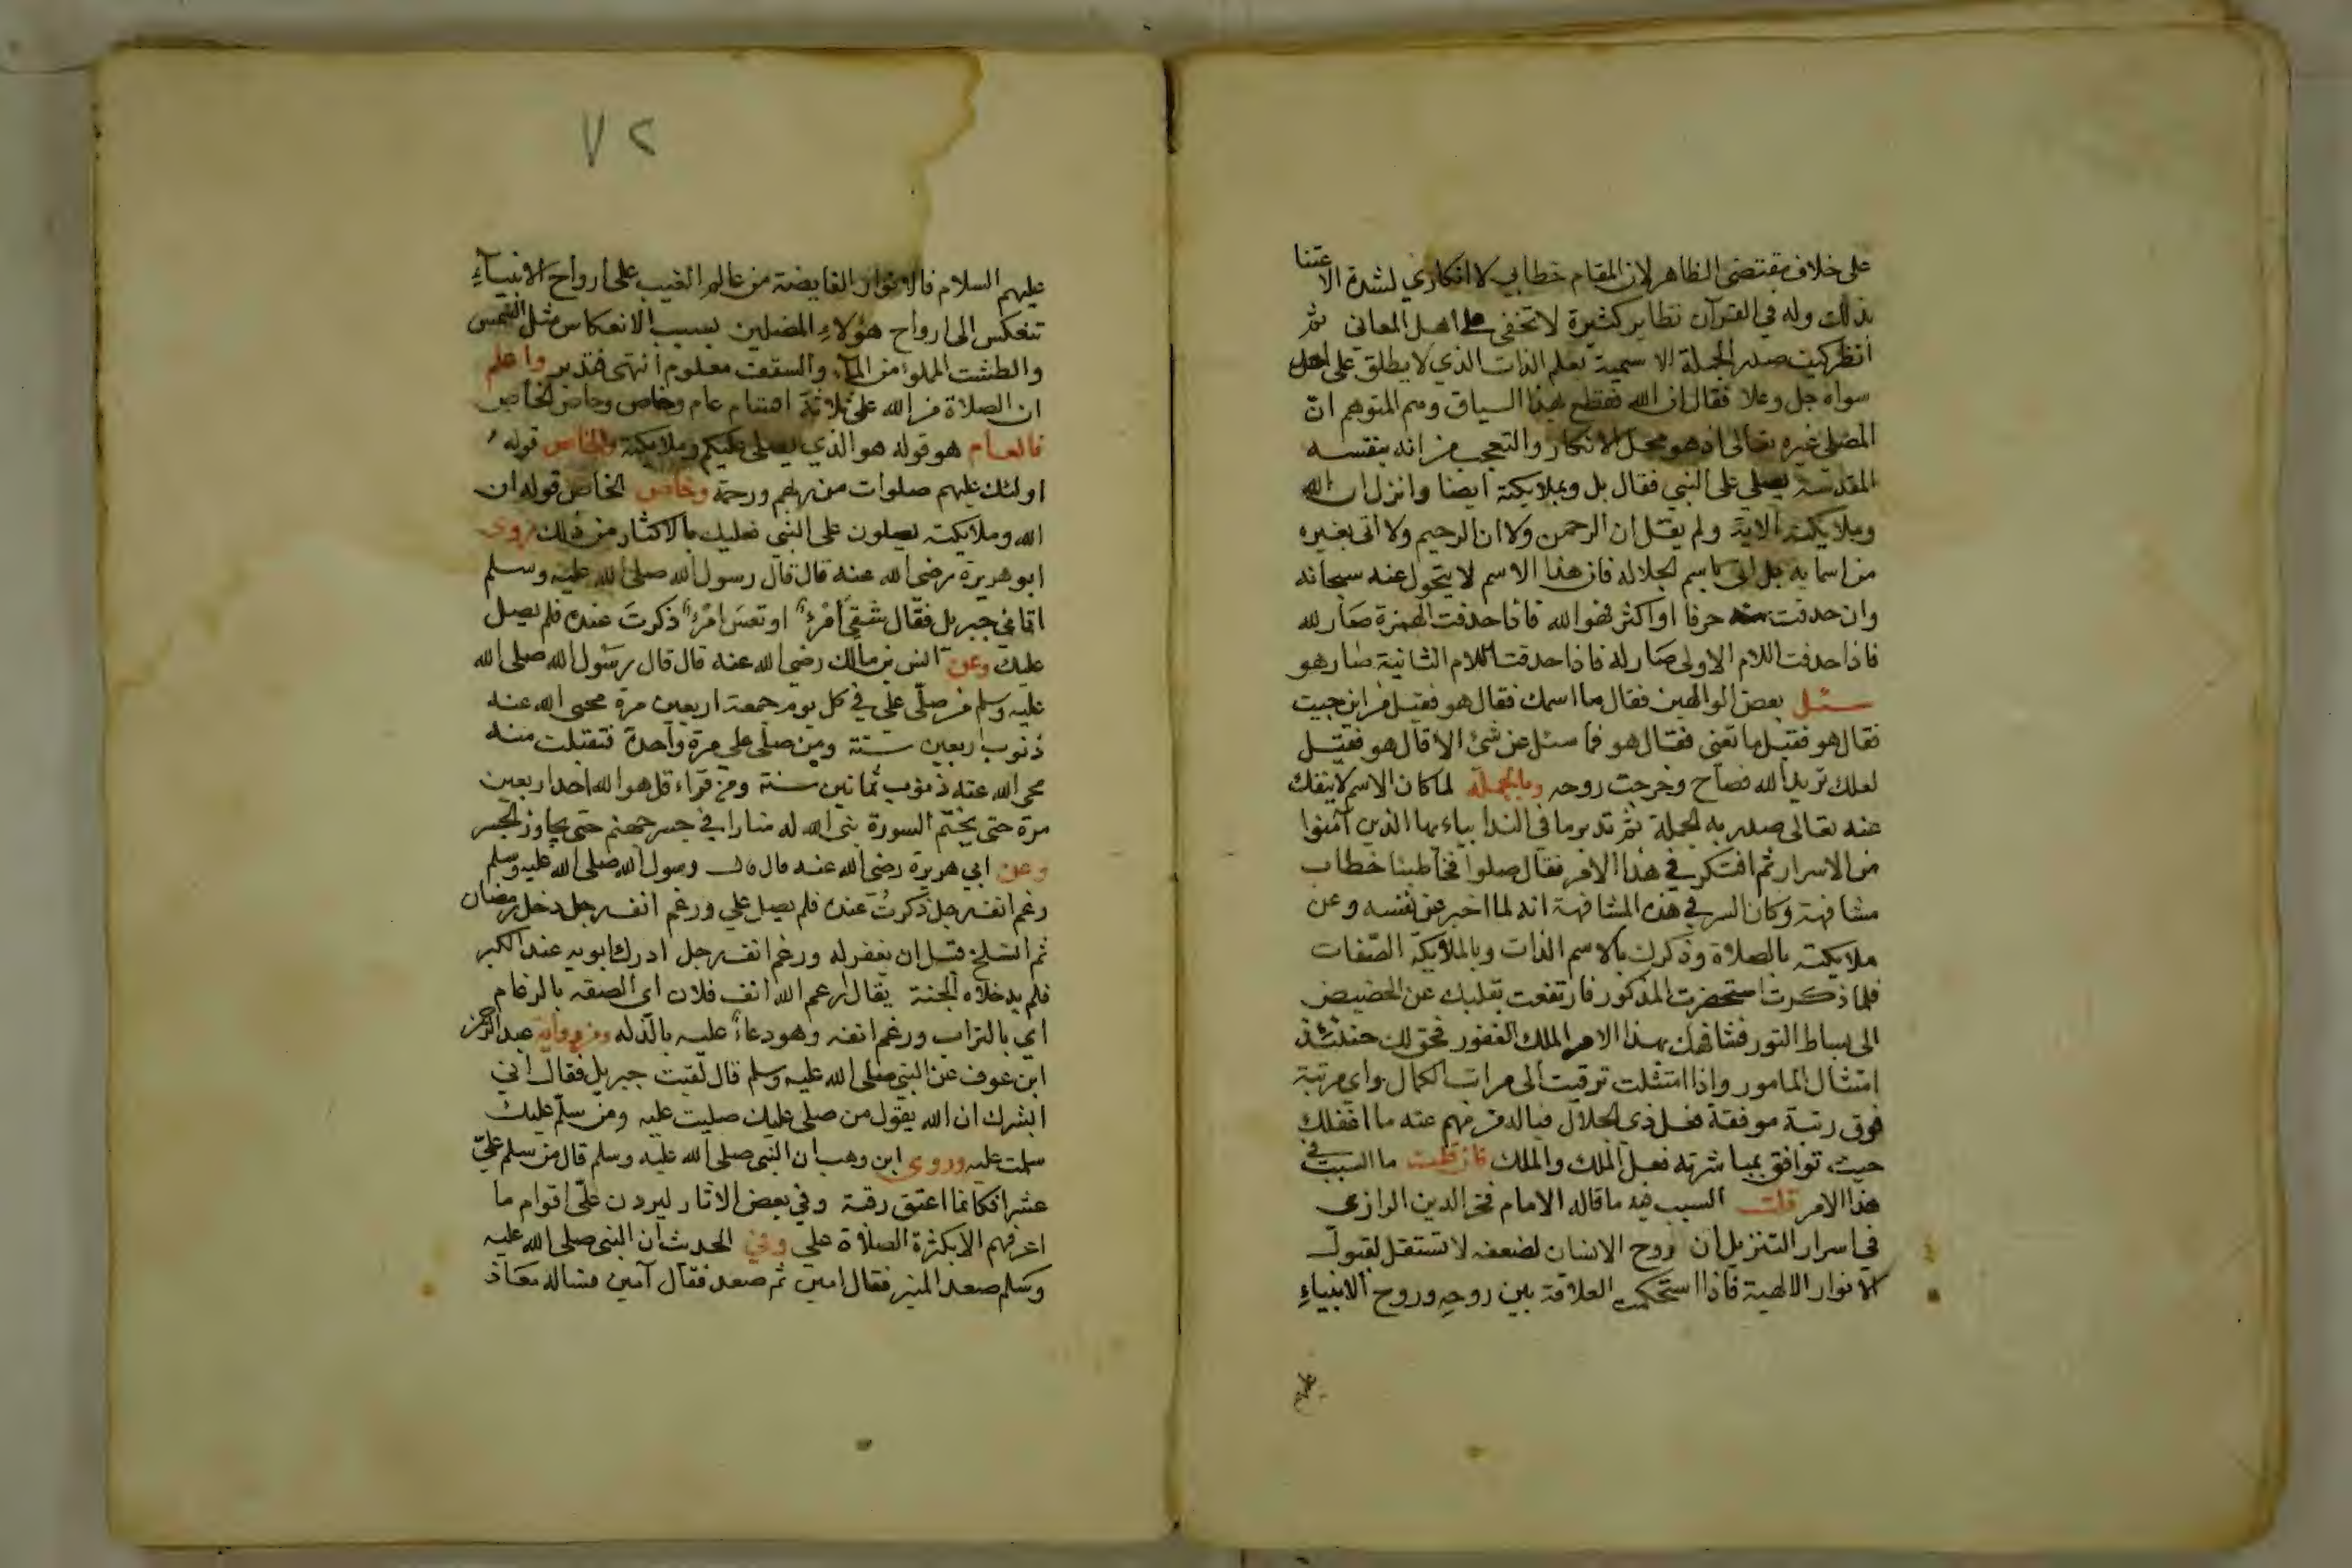 على خلاف مقتضى الظاهر لان المقام خطابي لا انكاري لشدة الاعتنا
بذلك وله في القرآن نظاير كثيرة لا تخفى على اهل المعاني ثم
انظر كيف صدر الجملة الاسمية بعلم الذات الذي لا يطلق على احد
سواه جل وعلا فقال ان الله فقطع بهذا السياق وهم المتوهم ان
المصلي غيره تعالى اذ هو محل الانكار والتعجب من انه بنفسه
المقدسة يصلي على النبي فقال بل وبملايكته ايضا وانزل ان الله
وملايكته الاية ولم يقل ان الرحمن ولا ان الرحيم ولا اتى بغيره
من اسمايه بل اتى باسم الجلاله فان هذا الاسم لا يتحول عنه سبحانه
وان حدفت منه حرفا او اكثر فهو الله فاذا حدفت الهمزة صار لله
فاذا حدفت اللام الاولى صار له فاذا حدفت اللام الثانية صار هو
سئل بعض الوالهين فقال ما اسمك فقال هو فقيل من اين جيت
فقال هو فقيل ما تعني فقال هو فما سئل عن شئ الا قال هو فقيل
لعلك تريد الله فصاح وخرجت روحه وبالجملة لما كان الاسم لا ينفك
عنه تعالى صدر به الجملة ثم تدبر ما في الندا بياءيها الذين آمنوا
من الاسرار ثم افتكر في هذا الامر فقال صلوا فخاطبنا خطاب
مشافهة وكان السر في هذه المشافهة انه لما اخبر عن نفسه وعن
ملايكته بالصلاة وذكرك بالاسم الذات وبالملايكة الصفات
فلما ذكرت استحضرت المذكور فارتفعت بقلبك عن الحضيض
الى بساط النور فشافهك بهذا الامر الملك الغفور فحق لك حنئذ
امتثال المامور واذا امتثلت ترقيت الى مراتب الكمال واي مرتبة
فوق رتبة موفقة فعل ذي الجلال فيا لد من فهم عنه ما اغفلك
حيث توافق بمباشرته فعل الملك والملك فان قلت ما السبب في
هذا الامر قلت السبب فيه ما قاله الامام فخر الدين الرازي
في اسرار التنزيل ان روح الانسان لضعفه لا تستقل لقبول
الانوار الالهية فاذا استحكمت العلاقة بين روحه وروح الانبياء
عليهم
٧٢
عليهم السلام فالانوار الفايضة من عالم الغيب على ارواح الانبياء
تنعكس الى ارواح هؤلاء المصلين بسبب الانعكاس مثل الشمس
والطشت المملوء من الماء والسقف معلوم انتهى فتدبر واعلم
ان الصلاة من الله على ثلاثة اقسام عام وخاص وخاص الخاص
فالعام هو قوله هو الذي يصلي عليكم وملايكته والخاص قوله
اولئك عليهم صلوات من ربهم ورحمة وخاص الخاص قوله ان
الله وملايكته يصلون على النبي فعليك بالاكثار من ذلك روى
ابو هريرة رضي الله عنه قال قال رسول الله صلى الله عليه وسلم
اتاني جبريل فقال شقي امرء او تعس امرء ذكرت عنده فلم يصل
عليك وعن انس بن مالك رضي الله عنه قال قال رسول الله صلى الله
عليه وسلم من صلى علي في كل يوم جمعة اربعين مرة محى الله عنه
ذنوب اربعين سنة ومن صلى علي مرة واحدة فتقبلت منه
محى الله عنه ذنوب ثمانين سنة ومن قراء قل هو الله احد اربعين
مرة حتى يختم السورة بنى الله له منارا في جسر جهنم حتى يجاوز الجسر
وعن ابي هريرة رضي الله عنه قال قال رسول الله صلى الله عليه وسلم
رغم انف رجل ذكرت عنده فلم يصل علي ورغم انف رجل دخل رمضان
ثم انسلخ قبل ان يغفر له ورغم انف رجل ادرك ابويه عند الكبر
فلم يدخلاه الجنة يقال ارغم الله انف فلان اي الصقه بالرغام
اي بالتراب ورغم انفه وهو دعاء عليه بالذله ومن رواية عبد الرحمن
ابن عوف عن النبي صلى الله عليه وسلم قال لقيت جبريل فقال اني
ابشرك ان الله يقول من صلى عليك صليت عليه ومن سلم عليك
سلمت عليه وروى ابن وهب ان النبي صلى الله عليه وسلم قال من سلم علي
عشرا فكانما اعتق رقبة وفي بعض الاثار ليردن علي اقوام ما
اعرفهم الا بكثرة الصلاة علي وفي الحديث ان النبي صلى الله عليه
وسلم صعد المنبر فقال امين ثم صعد فقال آمين فساله معاذ